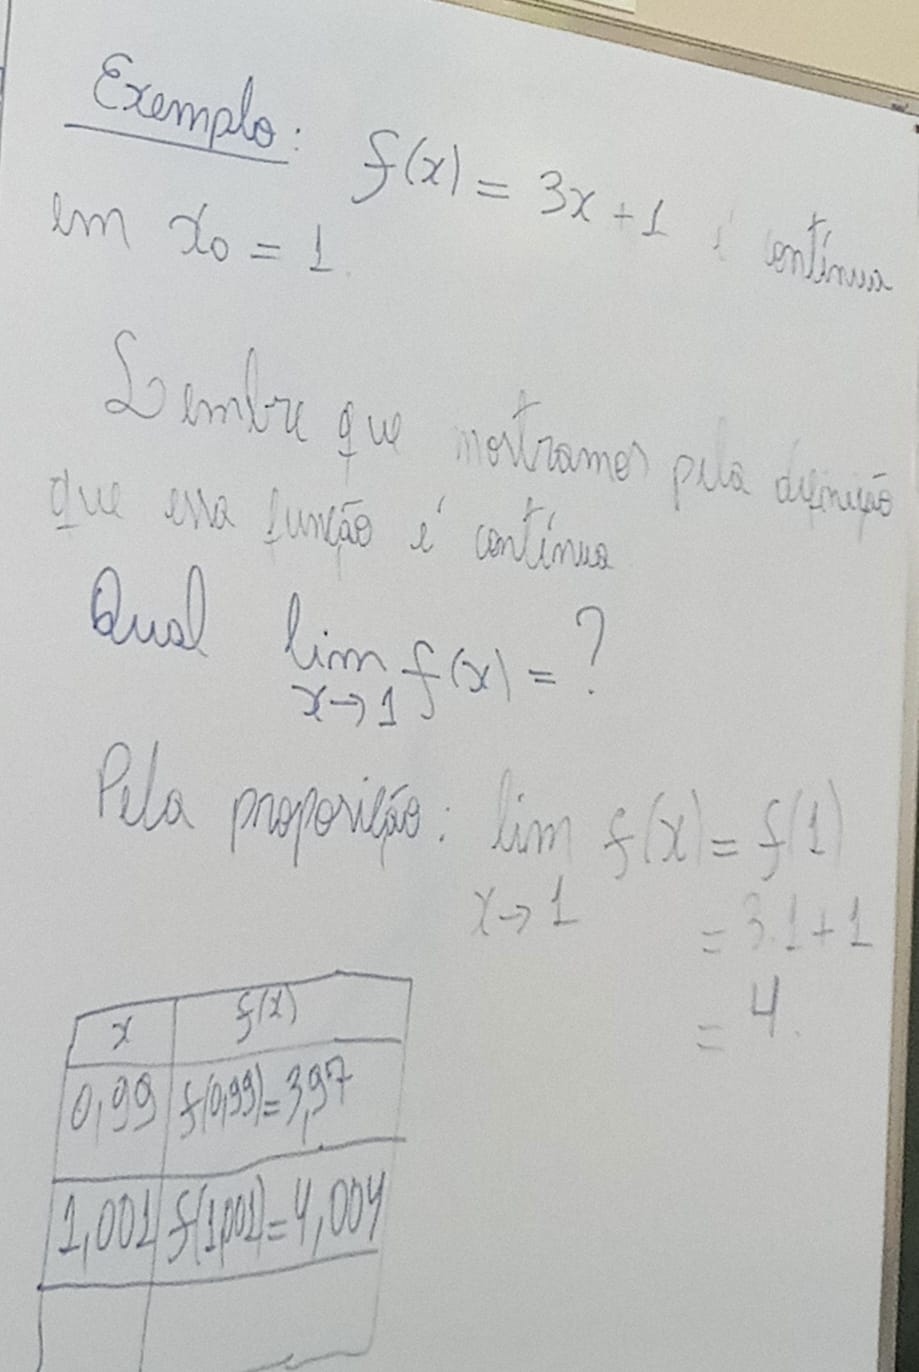 Exemplo: f(x) = 3x + 1 é contínua
em x₀ = 1.
Lembre que mostramos pela definição
que essa função é contínua
Qual lim f(x) = ?
x→1
Pela proposição: lim f(x) = f(1)
x→1
= 3.1 + 1
= 4.
x f(x)
0,99 f(0,99) = 3,97
1,001 f(1,001) = 4,004